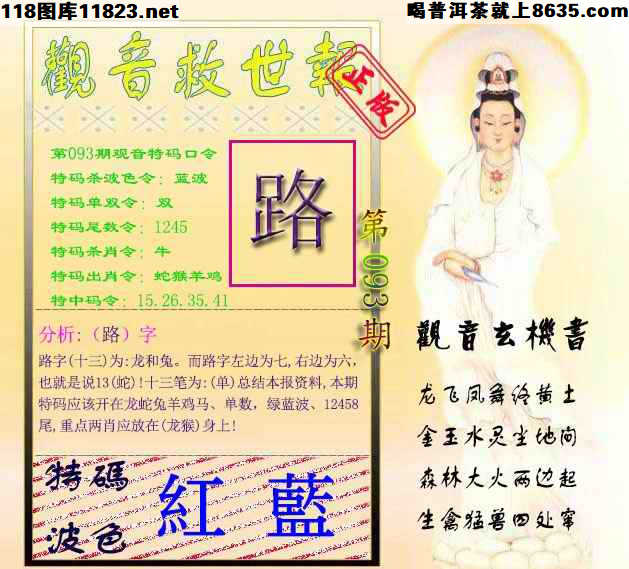 118图库11823.net
喝普洱茶就上8635.com
觀音救世報
正版
第093期观音特码口令
特码杀波色令：蓝波
特码单双令：双
特码尾数令：1245
特码杀肖令：牛
特码出肖令：蛇猴羊鸡
特中码令：15.26.35.41
路
第093期
分析:（路）字
路字(十三)为:龙和兔。而路字左边为七,右边为六，
也就是说13(蛇)!十三笔为:(单)总结本报资料,本期
特码应该开在龙蛇兔羊鸡马、单数，绿蓝波、12458
尾,重点两肖应放在(龙猴)身上!
特碼
波色
紅藍
觀音玄機書
龙飞凤舞终黄土
金玉水灵尘地间
森林大火两边起
生禽猛兽四处窜